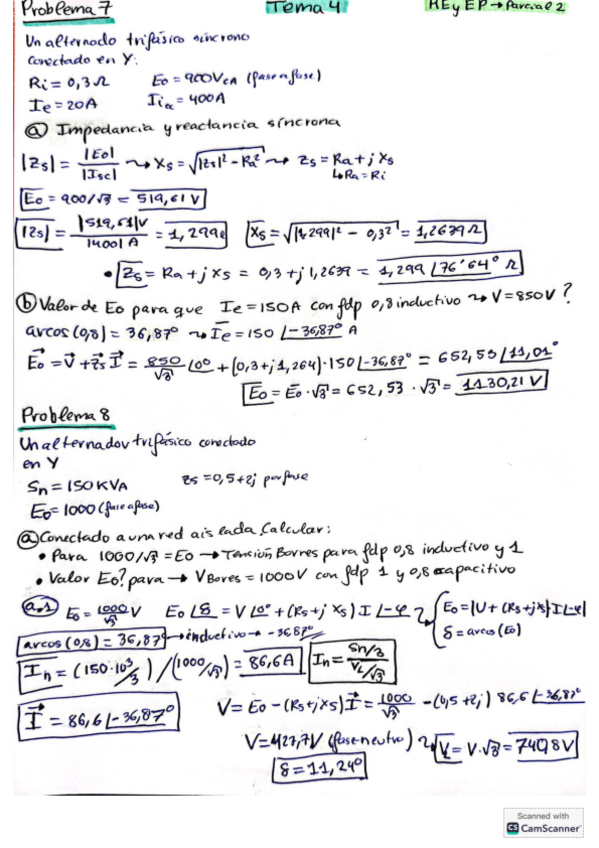 Problema 7 Tema 4 MEyEP → Parcial 2
Un alternado trifásico síncrono
conectado en Y:
Ri = 0,3 Ω E0 = 900 VCA (fase a fase)
Ie = 20 A Iicc = 400 A
ⓐ Impedancia y reactancia síncrona
|Zs| = |E0|/|Isc| ⇝ Xs = √|Zs|² - Ra² ⇝ Zs = Ra + j Xs
↳ Ra = Ri
E0 = 900/√3 = 519,61 V
|Zs| = |519,61|V/|400|A = 1,299Ω Xs = √|1,299|² - 0,3² = 1,2639 Ω
• Zs = Ra + j Xs = 0,3 + j 1,2639 = 1,299 ∠76'64° Ω
ⓑ Valor de E0 para que Ie = 150A con fdp 0,8 inductivo ⇝ V = 850V?
arcos(0,8) = 36,87° ⇝ Ie = 150 ∠-36,87° A
E0 = V + Zs I = 850/√3 ∠0° + (0,3 + j 1,264)·150 ∠-36,87° = 652,53 ∠11,01°
E0 = E0·√3 = 652,53·√3 = 1130,21 V
Problema 8
Un alternador trifásico conectado
en Y
Sn = 150 KVA Zs = 0,5 + 2j por fase
E0 = 1000 (fase a fase)
ⓐ Conectado a una red aislada, Calcular:
• Para 1000/√3 = E0 → Tensión Bornes para fdp 0,8 inductivo y 1
• Valor E0? para → VBornes = 1000V con fdp 1 y 0,8 capacitivo
a.1 E0 = 1000/√3 V E0 ∠δ = V ∠0° + (Rs + j Xs) I ∠-φ { E0 = |U + (Rs + jXs) I ∠-φ|
δ = arcos(E0)
arcos(0,8) = 36,87° → inductivo → -36,87°
In = (150·10³/3) / (1000/√3) = 86,6 A In = Sn/3 / VL/√3
I = 86,6 ∠-36,87° V = E0 - (Rs + j Xs) I = 1000/√3 - (0,5 + 2j) 86,6 ∠-36,87°
V = 427,7 V (fase-neutro) ⇝ VL = V·√3 = 740,8 V
δ = 11,24°
Scanned with
CS CamScanner